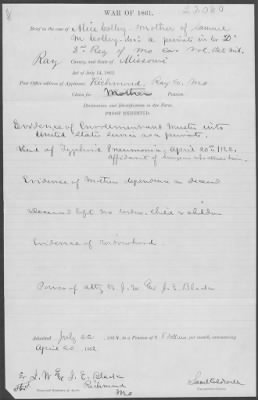 22060
WAR OF 1861.
Brief in the case of Alice Colley Mother of Samuel
M Colley dec'd a private in Co "D"
3rd Reg of Mo Cav Vol.
Ray County, and State of Missouri
Act of July 14, 1862.
Post Office address of Applicant, Richmond, Ray Co, Mo
Claim for Mothers Pension.
Declaration and Identification in due Form.
PROOF EXHIBITED.
Evidence of Enrollment and Muster into
United States service as a private.
Died of Typhoid Pneumonia, April 20th 1862.
Affidavit of
Evidence of Mothers dependence on deceased
Deceased left no widow, child or children
Evidence of
Power of atty to J. W. & J. E. Black
Admitted July 22, to a Pension of 8 Dollars per month, commencing
April 20, 1862.
J. W. & J. E. Black
Richmond
Mo